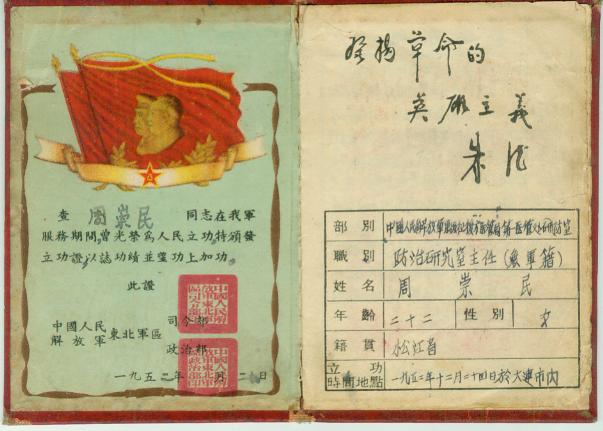 查 周崇民 同志在我軍
服務期間曾光榮為人民立功特頒發
立功證以誌功績並望功上加功。
此證
中國人民
解放軍東北軍區
司令部
政治部
一九五二年 月 二 日
發揚革命的
英雄主義
朱德
部別
職別 防治研究室主任(無軍籍)
姓名 周崇民
年齡 二十二 性別 女
籍貫 松江省
立功
時間地點 一九五二年十二月二十四日於大連市內